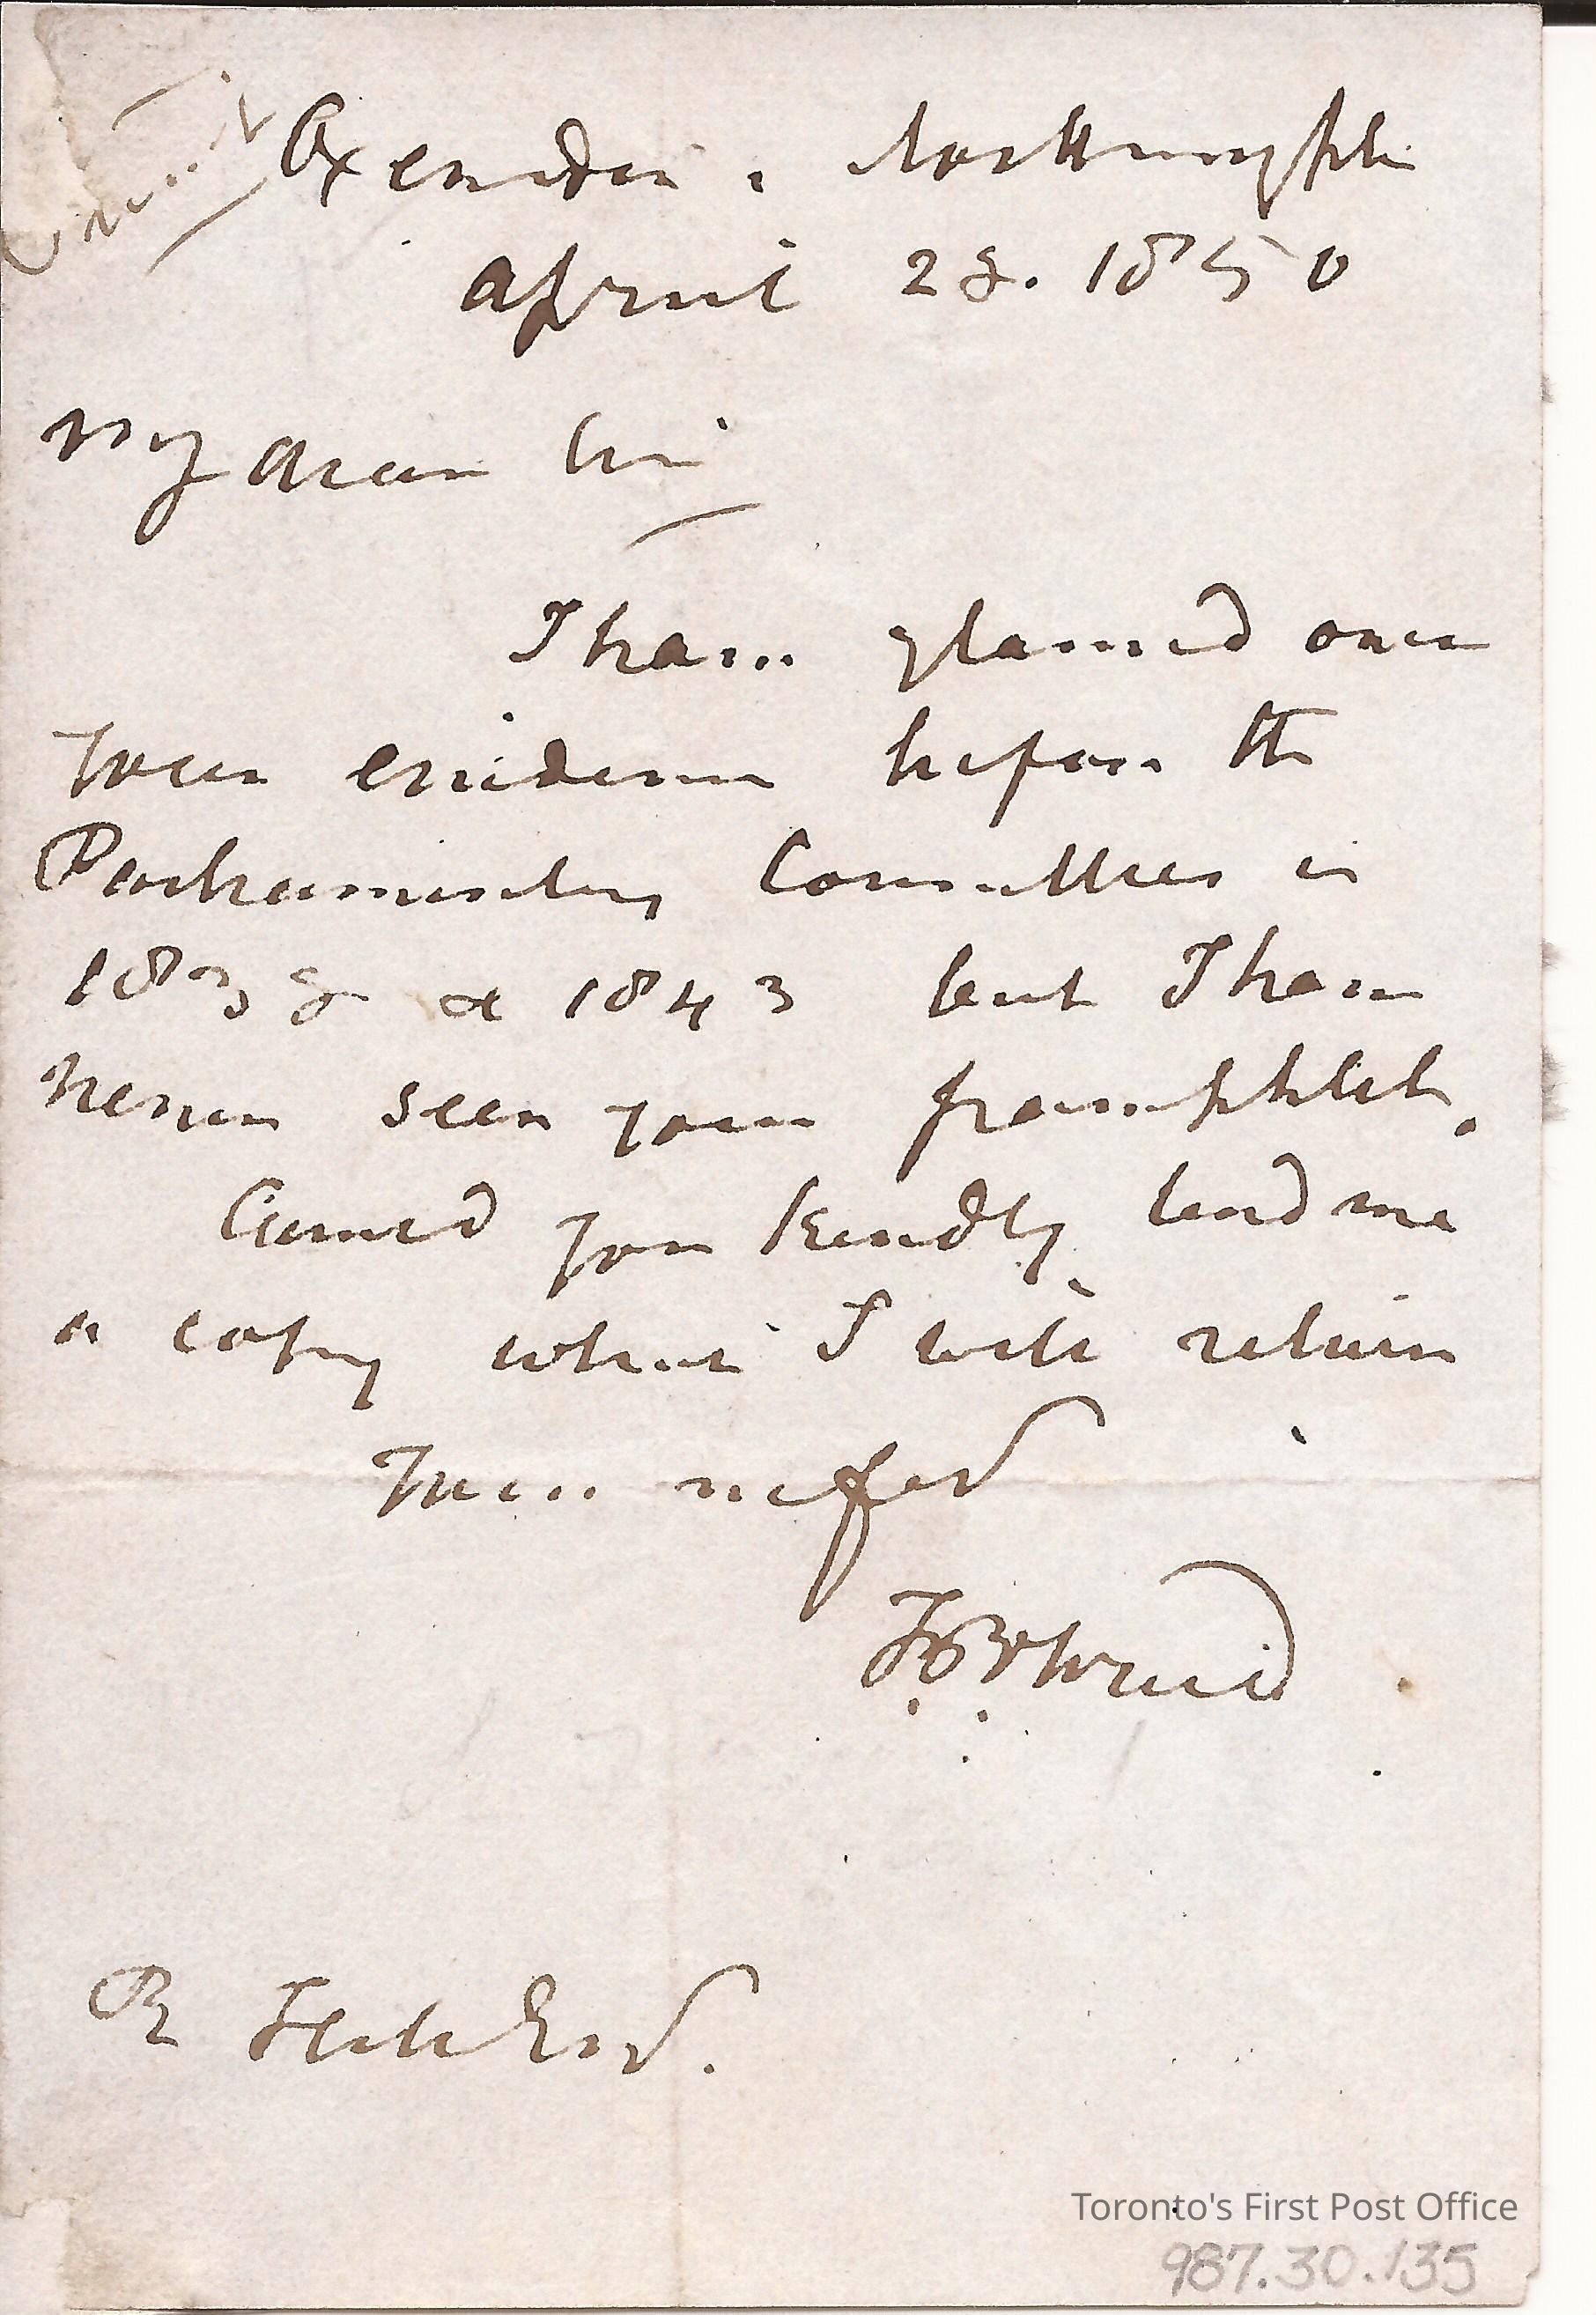 Oxendon. Northampton
April 28. 1850
My dear Sir
I have glanced over
your evidence before the
Parliamentary Committees in
1838 & 1843 but I have
never seen your pamphlet.
Could you kindly lend me
a copy which I will return
Yours
R
Toronto's First Post Office
987.30.135